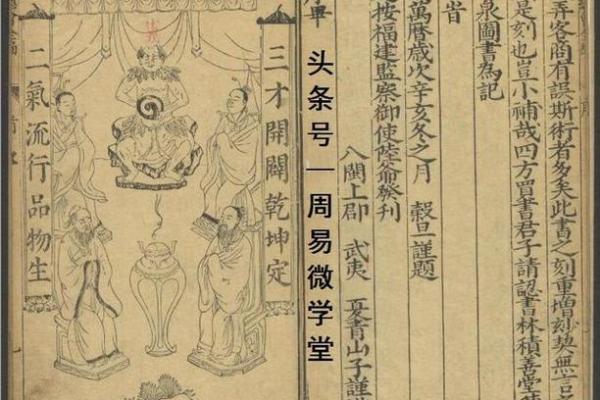 弄客商有誤斯術者多矣此書之刻重增
無言
是刻也豈小補哉四方買書君子請認書林積善堂
泉圖書為記
旹
萬曆歲次辛亥冬之月 穀旦謹題
按福建監察御使陸爺發刊
八閩上郡 武夷 青山子謹
头条号—周易微学堂
三才開闢乾坤定
二氣流行品物生